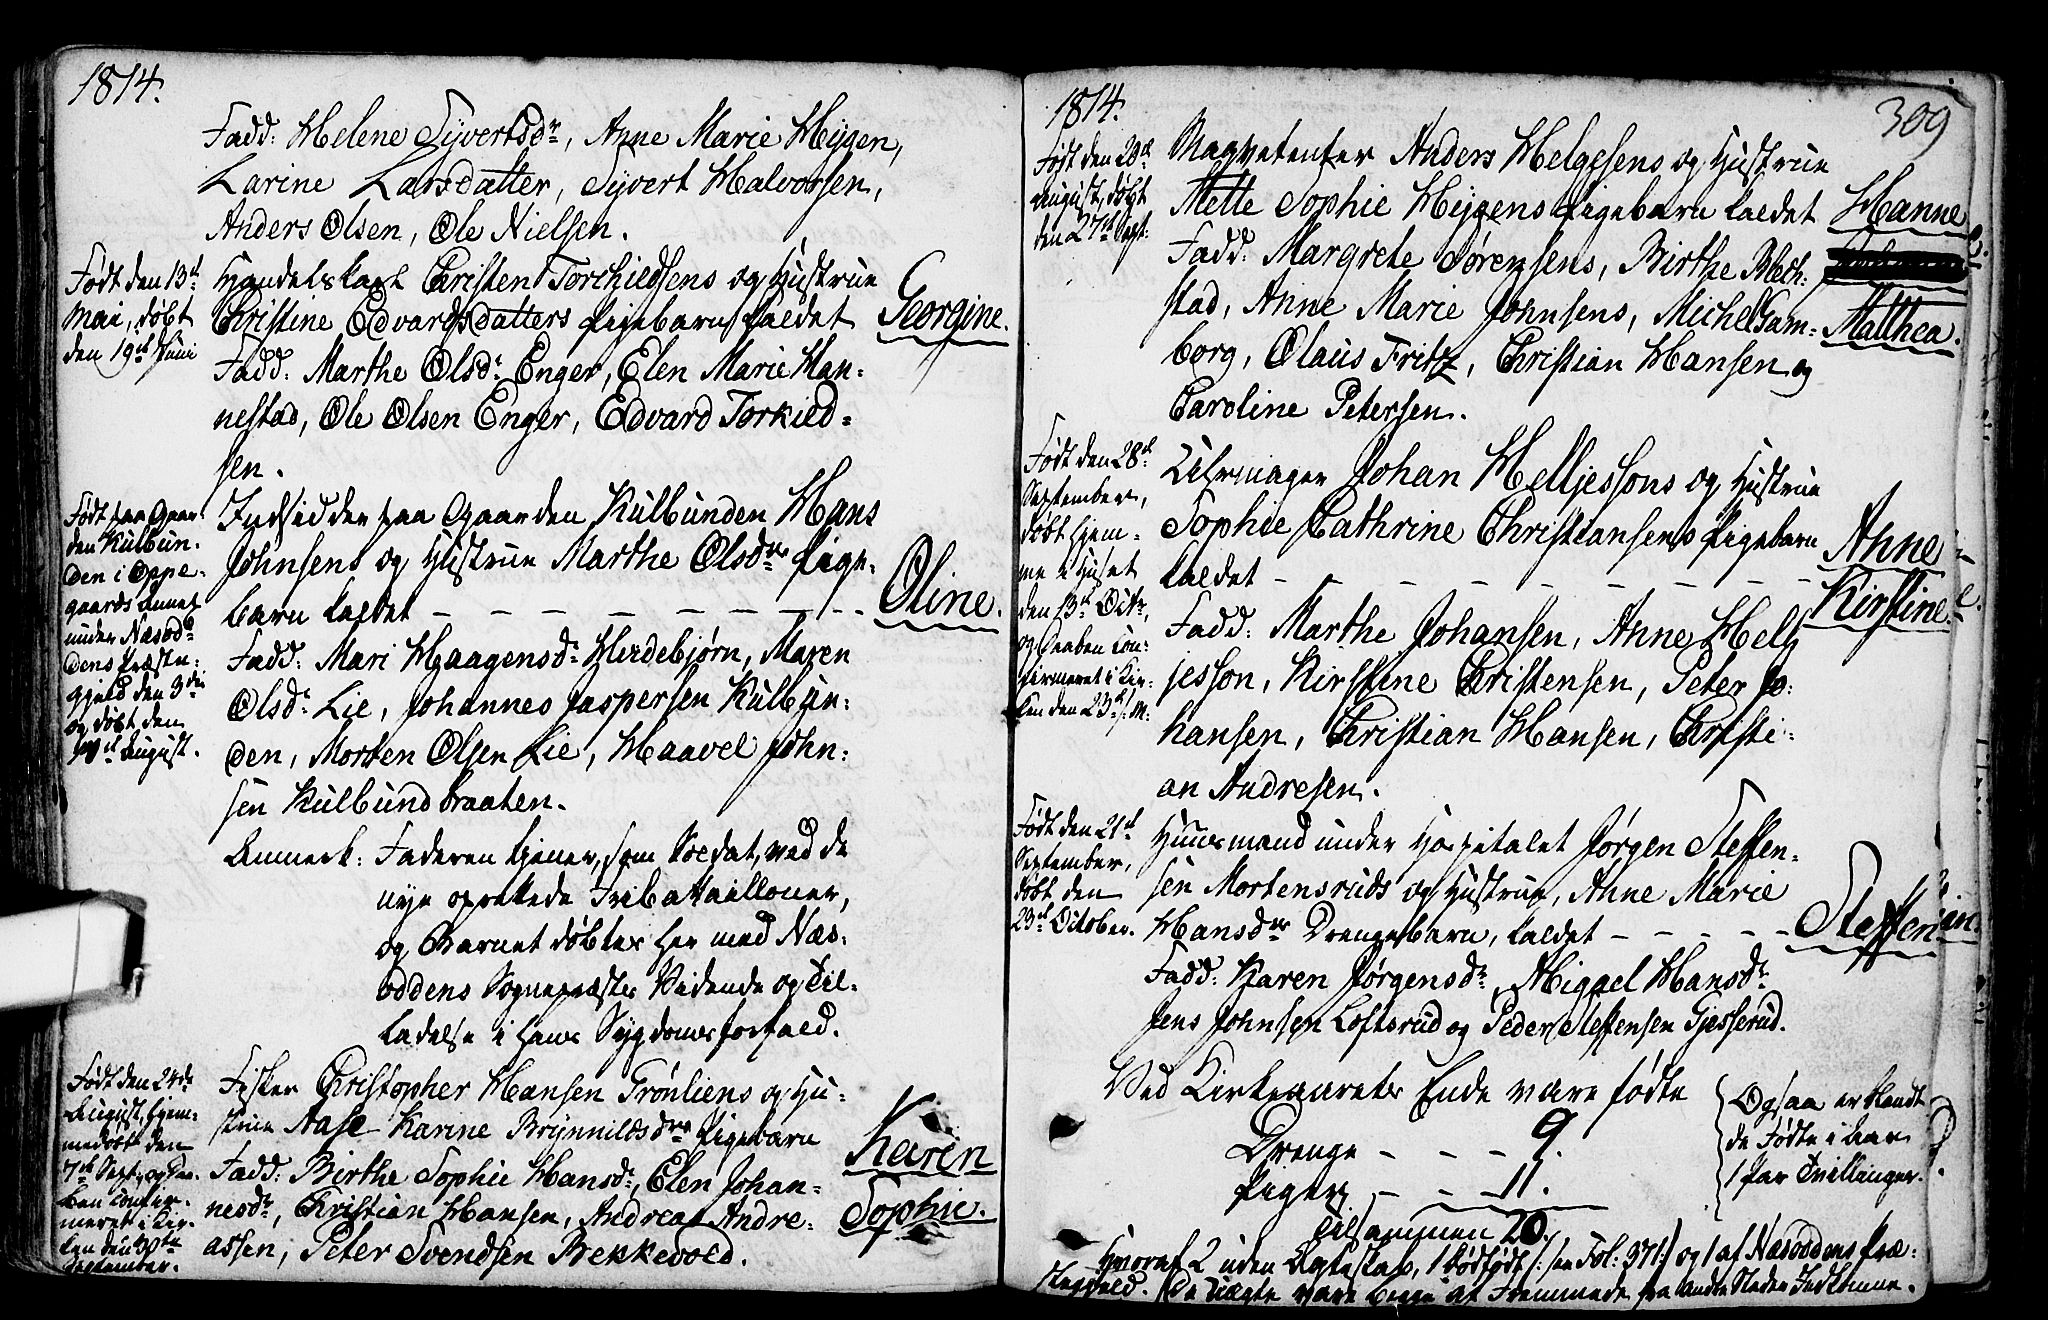 1814.
Fadd: Helene Syvertsdr, Anne Marie Heygen,
Larine Larsdatter, Syvert Halvorsen,
Anders Olsen, Ole Nielsen.
Født den 13de
Mai, døbt
den 19de Juni
Handelskarl Christen Torchildsens og Hustrue
Christine Edvardsdatters Pigebarn kaldet
Georgine.
Fadd: Marthe Olsdr Enger, Elen Marie Han-
nestad, Ole Olsen Enger, Edvard Torkild-
sen.
Født paa Gaar
den Kulbun-
den i Oppe-
gaards Annex
under Næsod-
dens Præste-
gjeld den 3die
og døbt den
August.
Indsidder paa Gaarden Kulbunden Hans
Johnsens og Hustrue Marthe Olsdrs Pige-
barn kaldet - - - - - - - -
Oline.
Fadd: Mari Haagensdr Hvidebjørn, Maren
Olsdr Lie, Johannes Jaspersen Kulbun-
den, Morten Olsen Lie, Haavel John-
sen Kulbundbraaten.
Anmerk: Faderen tjener, som Soldat, ved de
nye oprettede Fribatailloner,
og Barnet døbtes her med Næs-
oddens Sognepræstes Vidende og Til-
ladelse i hans Sygdomsforfald.
Født den 24de
August, hjem-
medøbt den
7de Sept. og Daa-
ben confir-
meret i Kir-
ken den
September.
Fisker Christopher Hansen Grønliens og Hu-
strue Aase Karine Brynnildsdrs Pigebarn
Karen
Sophie.
Fadd: Birthe Sophie Hansdr, Elen Johan-
nesdr, Christian Hansen, Andreas Andre-
assen, Peter Svendsen Bekkevold.
1814.
309
Født den 20de
August, døbt
den 27de Sept:
Marketenter Anders Helgesens og Hustrue
Mette Sophie Heygens Pigebarn kaldet
Hanne
Matthea.
Fadd: Margrete Sørensens, Birthe Blech-
stad, Anne Marie Johnsens, Michel Gam-
borg, Olaus Fritz, Christian Hansen og
Caroline Petersen.
Født den 28de
September,
døbt hjem-
me i Huset
den 13de Octr,
og Daaben con-
firmeret i Kir-
ken den 23de s: M:
Uhrmager Johan Helljessons og Hustrue
Sophie Cathrine Christiansens Pigebarn
kaldet - - - - - - - -
Anne
Kirstine.
Fadd: Marthe Johansen, Anne Hell-
jesson, Kirstine Christensen, Peter Jo-
hansen, Christian Hansen, Christi-
an Andresen.
Født den 21de
September,
døbt den
23de October.
Huusmand under Hospitalet Jørgen Steffen-
sen Mortensruds og Hustrue, Anne Marie
Hansdrs Drengebarn, kaldet - - - - -
Steffen
Fadd: Karen Jørgensdr, Miggel Hansdr
Jens Johnsen Loftsrud og Peder Steffensen Gjesserud.
Ved Kirkeaarets Ende vare fødte
Drenge - - - 9.
Piger - - 11.
Tilsammen 20.
Ogsaa er blandt
de Fødte i Aar
1 Par Tvillinger.
Hvoraf 2 uden Ægteskab, 1 dødfødt /: see Fol: 371:/ og 1 af Næsoddens Præ-
stegjeld. De Uægte vare begge af Fremmede fra andre Steder Indkomne.